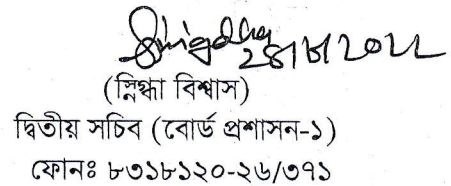 (স্নিগ্ধা বিশ্বাস)
দ্বিতীয় সচিব (বোর্ড প্রশাসন-১)
ফোনঃ ৮৩১৮১২০-২৬/৩৭১